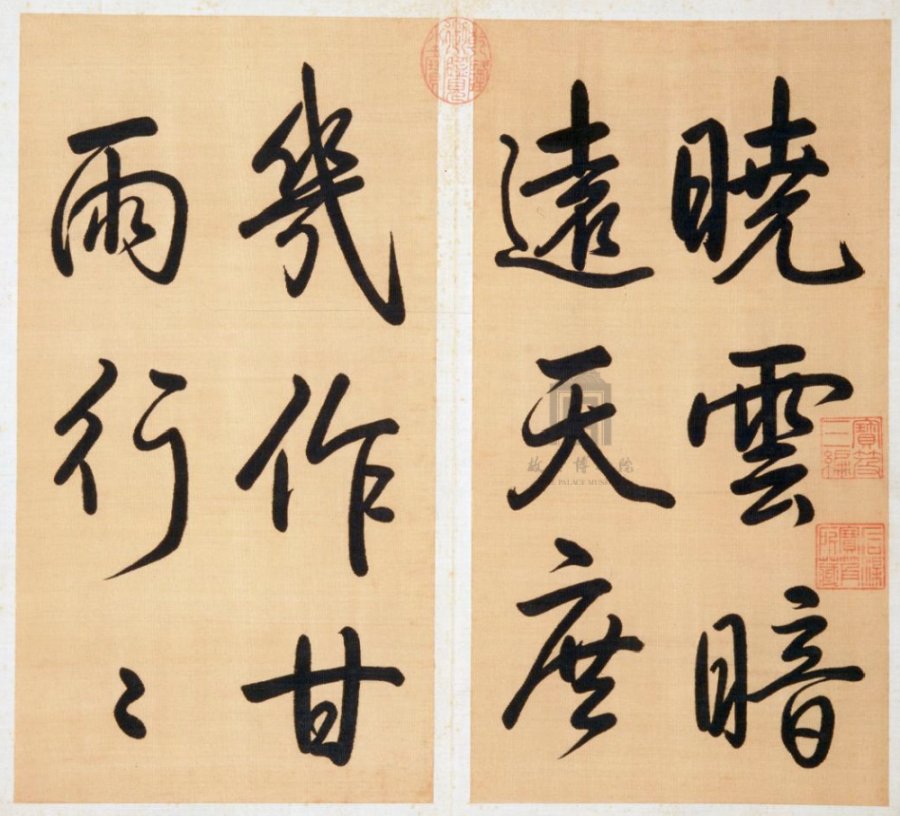 曉雲暗
遠天庶
幾作甘
雨行〻
故宮博物院
THE PALACE MUSEUM
寶笈三編